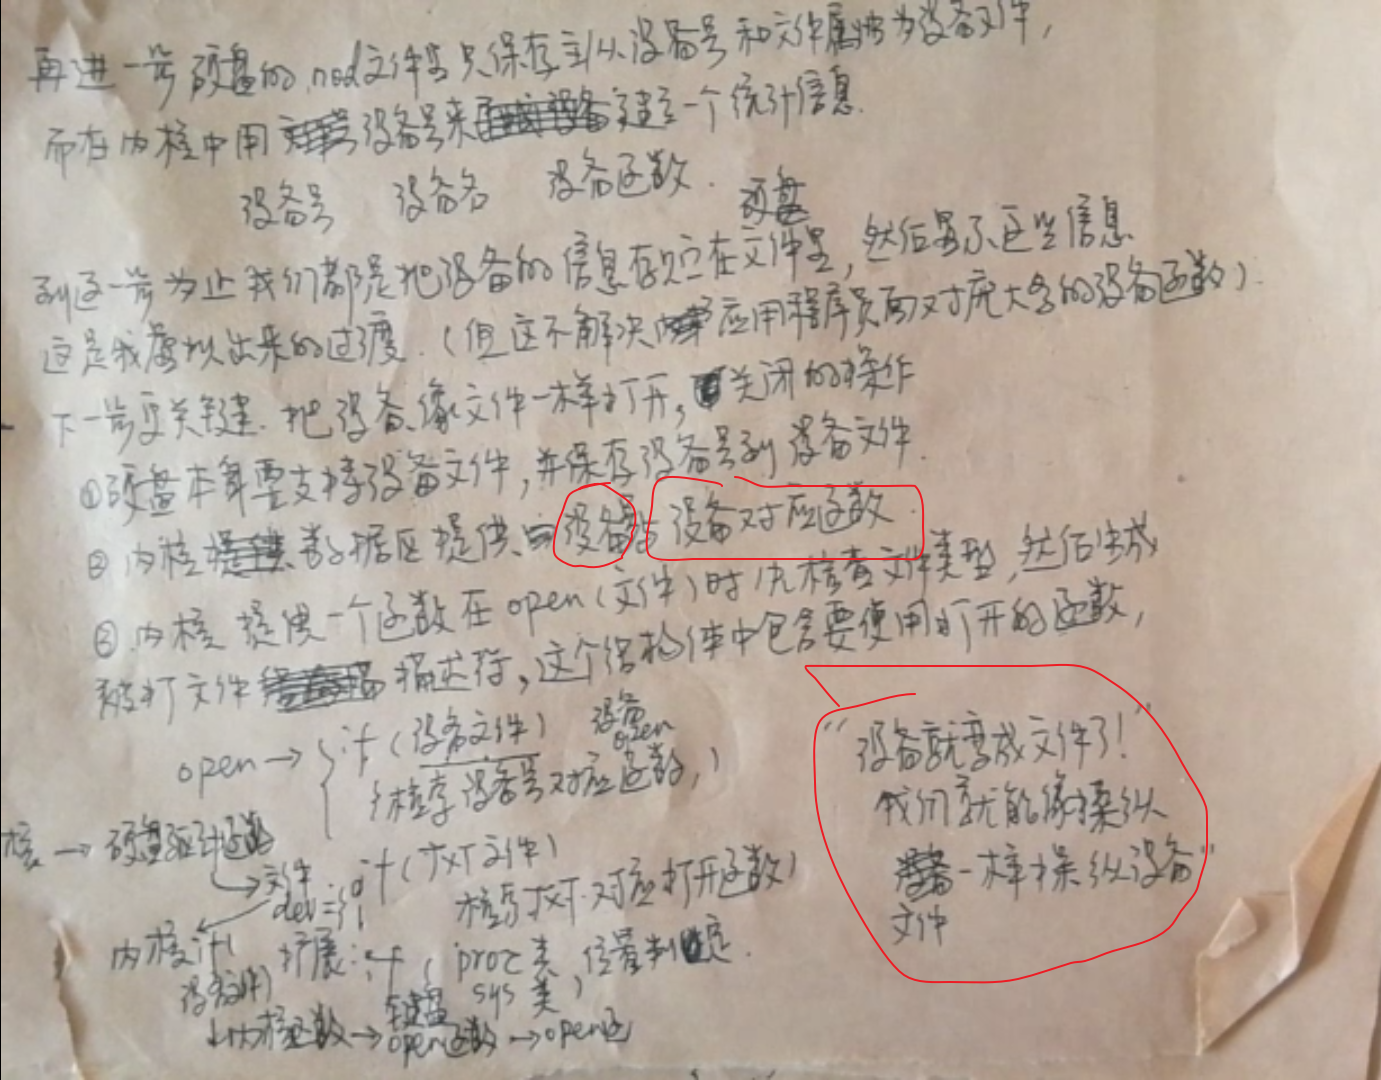 再进一步 硬盘的 .nod文件 只保存主从设备号和文件属性为设备文件，
而在内核中用 设备号来 建立一个统计信息.
设备号 设备名 设备函数.
硬盘
到这一步为止我们都是把设备的信息存贮在文件里，然后显示这些信息
这是我虚拟出来的过渡.（但这不解决 应用程序员面对庞大多的设备函数）.
下一步更关键. 把设备像文件一样打开， 关闭的操作
①硬盘本身要支持设备文件，并保存设备号到设备文件.
② 内核 数据区提供 设备号与 设备对应函数.
③.内核提供一个函数在open(文件)时先检查文件类型，然后生成
被打文件 描述符，这个结构体中包含要使用打开的函数，
open→ { if (设备文件) 设备open
{检查设备号对应函数,}
核 → 硬盘驱动函数
文件 dev={ if (txt文件)
检索txt.对应打开函数}
内核 设备文件
扩展: if ( proc类, sys类 ) 位置判定.
内核函数→键盘open函数→open函
“设备就变成文件了！”
我们就能像操纵
文件一样操纵设备”